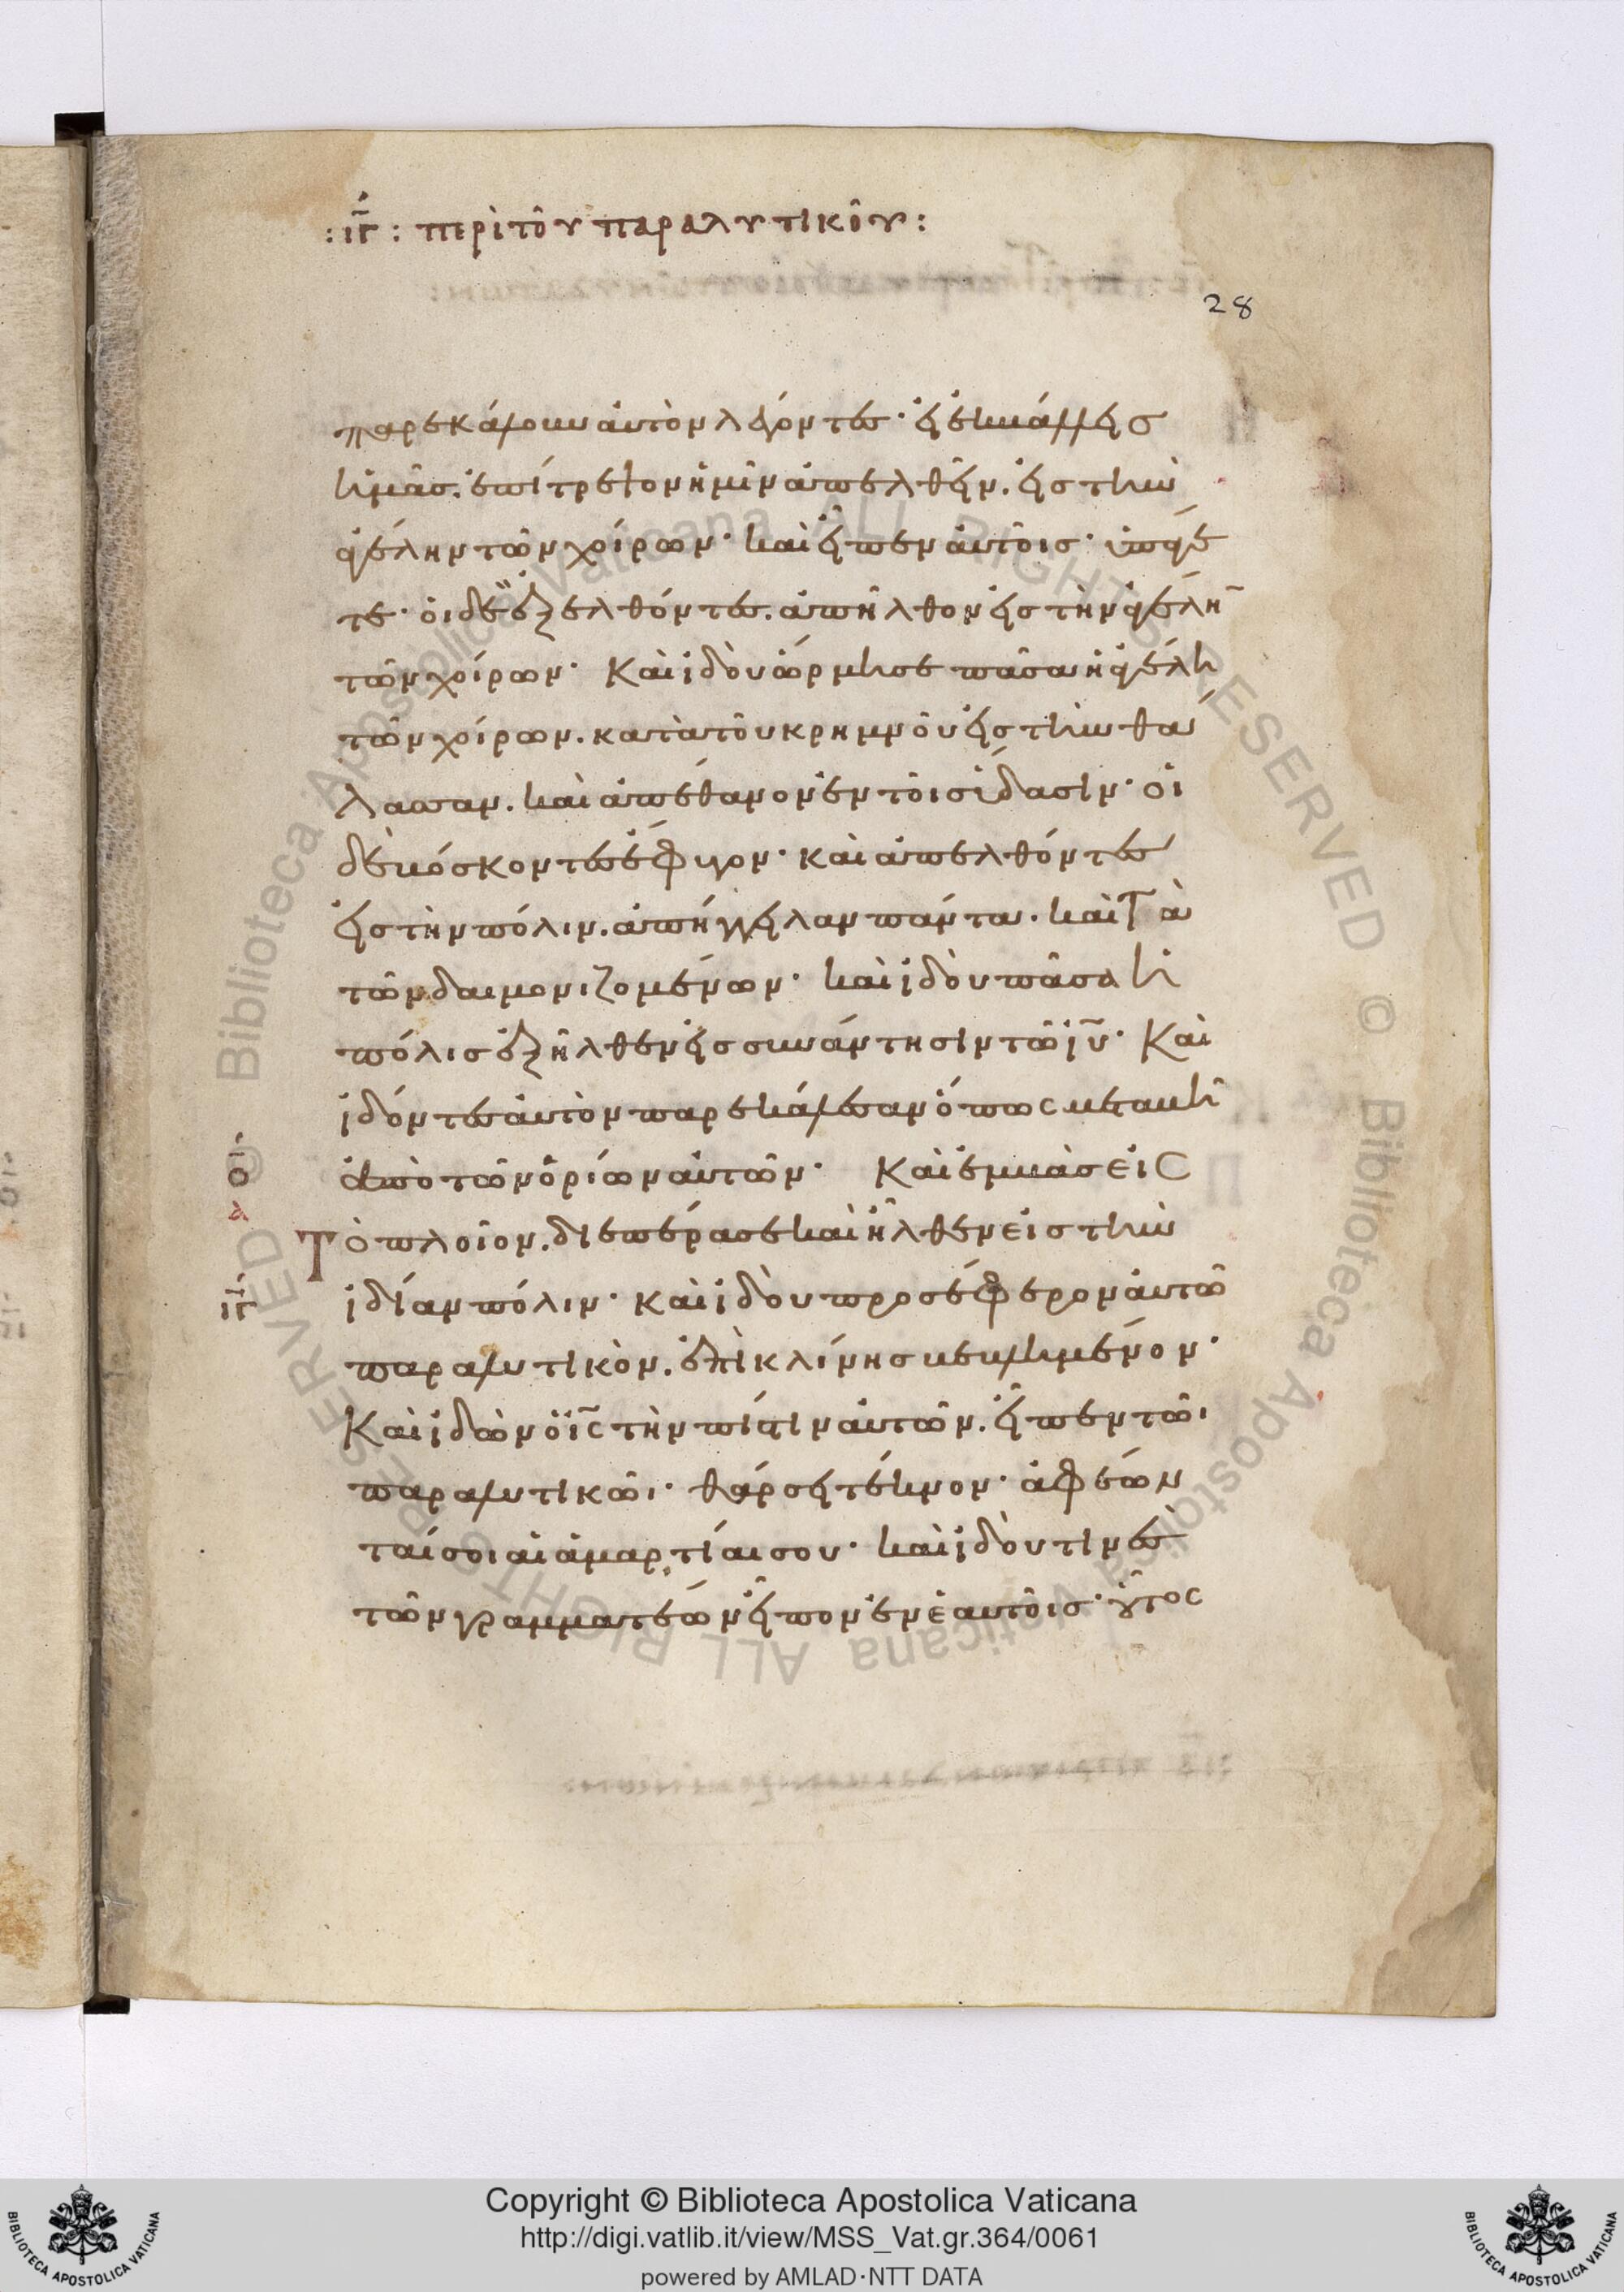 : ιγ : περὶ τοῦ παραλυτικοῦ :
28
παρεκάλουν αὐτὸν λέγοντες· εἰ ἐκβάλλεις
ἡμᾶς. ἐπίτρεψον ἡμῖν ἀπελθεῖν. εἰς τὴν
ἀγέλην τῶν χοίρων· καὶ εἶπεν αὐτοῖς· ὑπάγε
τε· οἱ δὲ ἐξελθόντες. ἀπῆλθον εἰς τὴν ἀγέλη̄
τῶν χοίρων· Καὶ ἰδοὺ ὥρμησε πᾶσα ἡ ἀγέλη
τῶν χοίρων. κατὰ τοῦ κρημνοῦ εἰς τὴν θά
λασσαν. καὶ ἀπέθανον ἐν τοῖς ὕδασιν· οἱ
δὲ βόσκοντες ἔφυγον· καὶ ἀπελθόντες
εἰς τὴν πόλιν. ἀπήγγειλαν πάντα. καὶ τὰ
τῶν δαιμονιζομένων· καὶ ἰδοὺ πᾶσα ἡ
πόλις ἐξῆλθεν εἰς συνάντησιν τῶ ἰῡ· Καὶ
ἰδόντες αὐτὸν παρεκάλεσαν ὅπως μεταβῆ
ἀπὸ τῶν ὁρίων αὐτῶν· Καὶ ἐμβὰς εἰς
Τὸ πλοῖον. διεπέρασε καὶ ἦλθεν εἰς τὴν
ο
α
ιγ
ἰδίαν πόλιν· καὶ ἰδοὺ προσέφερον αὐτῶ
παραλυτικὸν. ἐπὶ κλίνης βεβλημένον·
Καὶ ἰδὼν ὁ ῑς τὴν πίστιν αὐτῶν. εἶπεν τῶι
παραλυτικῶι· θάρσει τέκνον· ἀφέων
ταί σοι αἱ ἁμαρτίαι σου· καὶ ἰδού τινες
τῶν γραμματέων εἶπον ἐν ἑαυτοῖς· οὗτος
Copyright © Biblioteca Apostolica Vaticana
http://digi.vatlib.it/view/MSS_Vat.gr.364/0061
powered by AMLAD·NTT DATA
BIBLIOTECA APOSTOLICA VATICANA
BIBLIOTECA APOSTOLICA VATICANA
Biblioteca Apostolica Vaticana ALL RIGHTS RESERVED ©
Biblioteca Apostolica Vaticana ALL RIGHTS RESERVED ©